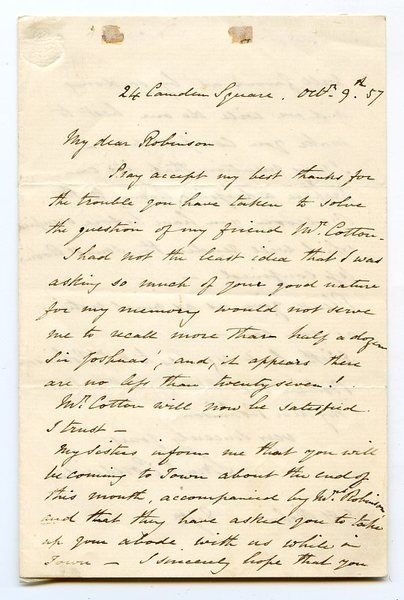 24 Camden Square. Octr. 9th. 57
My dear Robinson
Pray accept my best thanks for
the trouble you have taken to solve
the question of my friend Mr. Cotton -
I had not the least idea that I was
asking so much of your good nature
for my memory would not serve
me to recall more than half a dozen
Sir Joshuas', and, it appears there
are no less than twenty seven!
Mr. Cotton will now be satisfied
I trust -
My Sisters inform me that you will
be coming to Town about the end of
this month, accompanied by Mrs. Robinson,
and that they have asked you to take
up your abode with us while in
Town - I sincerely hope that you